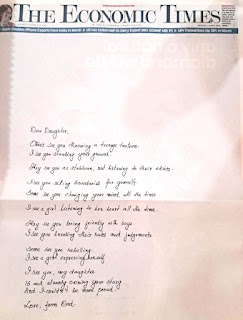 THE ECONOMIC TIMES
Dear Daughter,
Others see you throwing a teenage tantrum.
I see you standing your ground.
They see you as stubborn, not listening to their advice.
I see you setting boundaries for yourself.
Some see you changing your mind all the time.
I see a girl listening to her heart all the time.
They see you being friendly with boys.
I see you breaking their rules and judgements.
Some see you rebelling.
I see a girl expressing herself.
I see you, my daughter
is not already owning your story.
And I couldn't be more proud.
Love, from Dad.